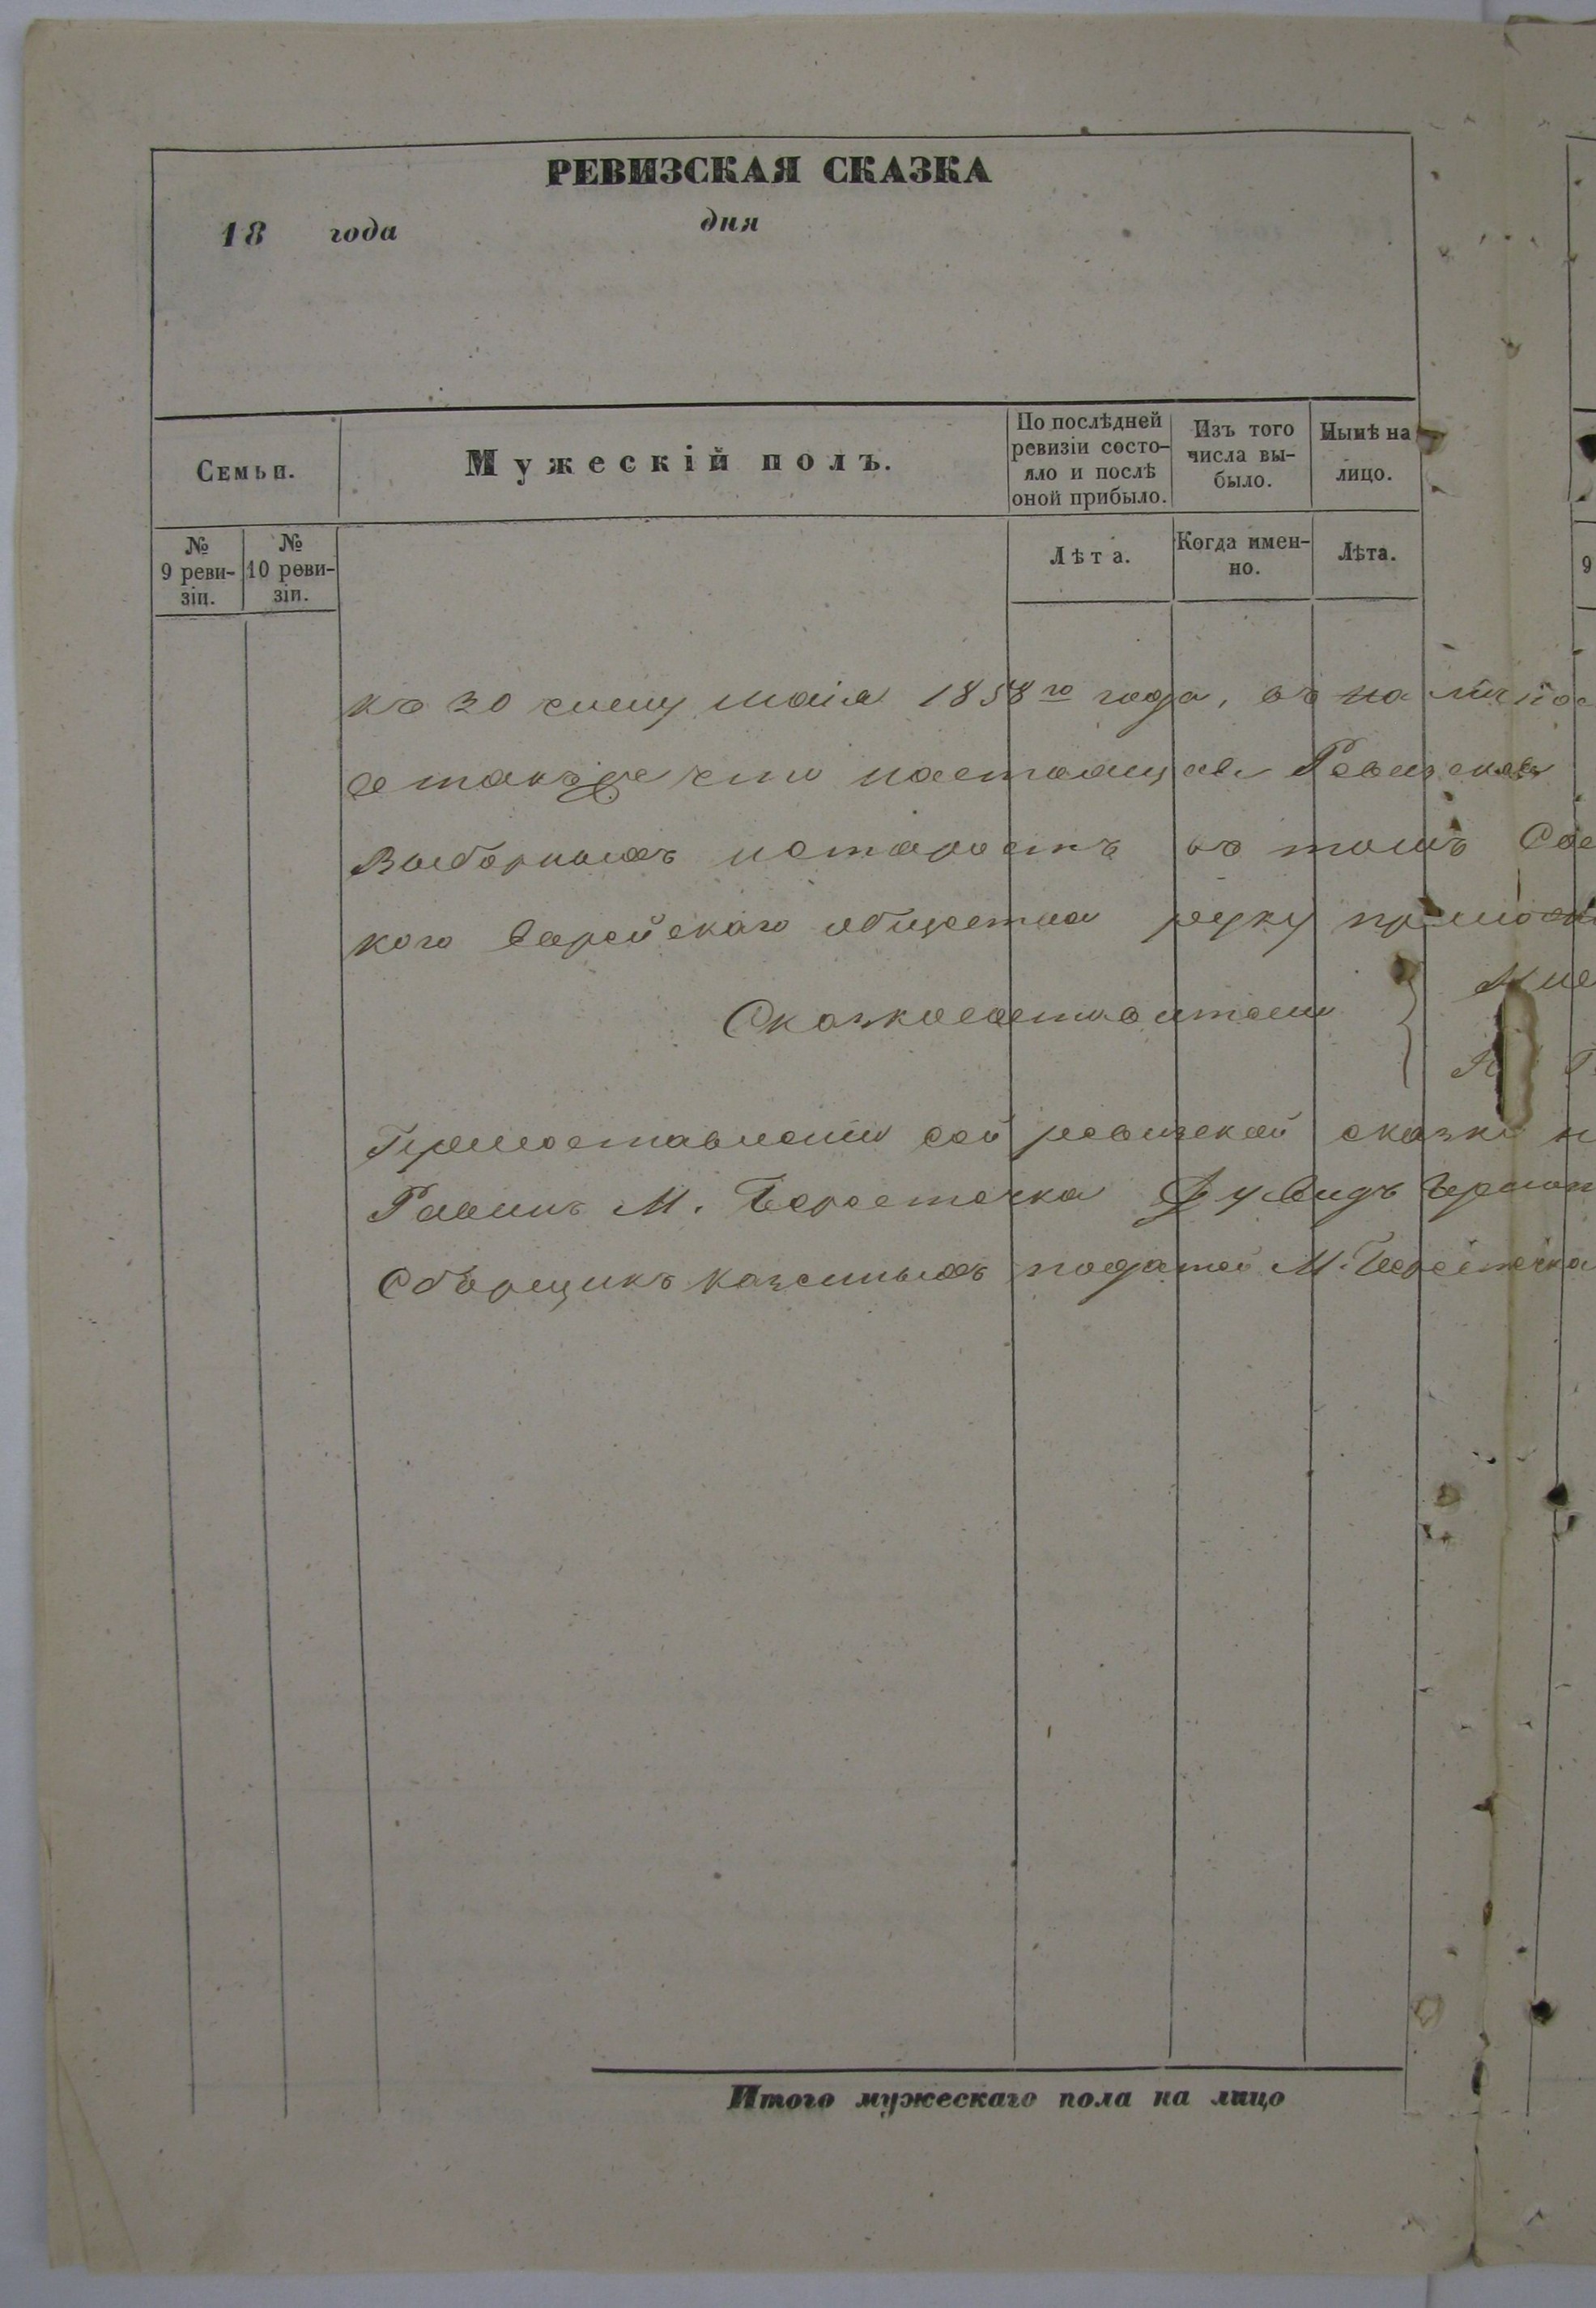 РЕВИЗСКАЯ СКАЗКА
18 года дня
Семьи.
Мужескій полъ.
По послѣдней ревизіи состо-
яло и послѣ
оной прибыло.
Изъ того
числа вы-
было.
Нынѣ на
лицо.
№
9 реви-
зіи.
№
10 реви-
зіи.
Лѣта.
Когда имен-
но.
Лѣта.
9
къ 30 числу маія 1858го года, въ
а также что настоящая Ревизская
Выборныхъ въ томъ
кого Еврейскаго общества руку
Сказкосоставители
сей ревизской сказки
Равинъ М. Берестечка Дувидъ
Сборщикъ казенныхъ податей М. Берестечка
Итого мужескаго пола на лицо